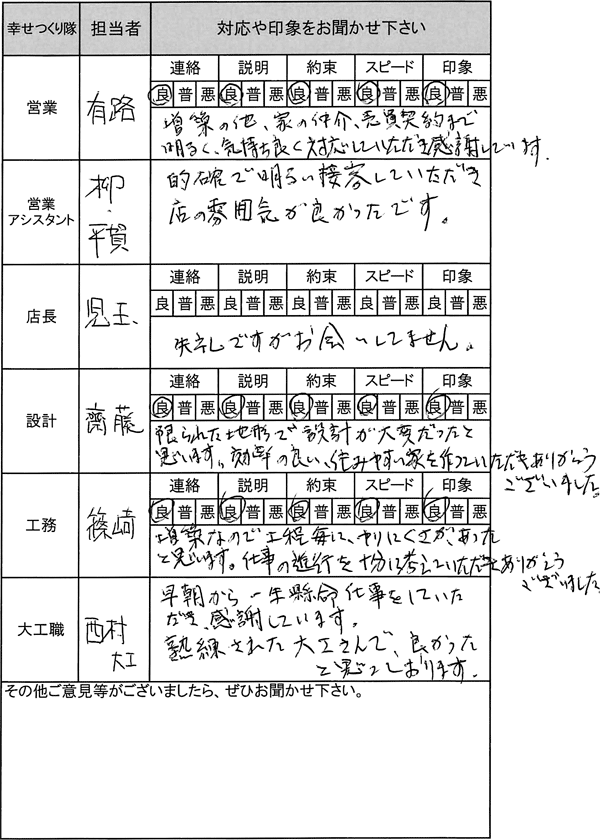 幸せつくり隊 担当者 対応や印象をお聞かせ下さい
営業 有路
連絡 説明 約束 スピード 印象
良 普 悪 良 普 悪 良 普 悪 良 普 悪 良 普 悪
増築の他、家の仲介、売買契約まで
明るく、気持ち良く対応していただき感謝しています.
営業
アシスタント
柳・平賀
的確で明るい接客していただき
店の雰囲気が良かったです。
店長 児玉、
連絡 説明 約束 スピード 印象
良 普 悪 良 普 悪 良 普 悪 良 普 悪 良 普 悪
失礼ですがお会いしてません。
設計 齋藤
連絡 説明 約束 スピード 印象
良 普 悪 良 普 悪 良 普 悪 良 普 悪 良 普 悪
限られた地形で設計が大変だったと
思います。効率の良い、住みやすい家を作っていただきありがとう
ございました。
工務 篠崎
連絡 説明 約束 スピード 印象
良 普 悪 良 普 悪 良 普 悪 良 普 悪 良 普 悪
増築なので工程毎に、やりにくさが、あった
と思います。仕事の進行を十分に考えていただきありがとう
ございました
大工職 西村
大工
早朝から一生懸命仕事をしていた
だき、感謝しています。
熟練された大工さんで、良かった
と思っております.
その他ご意見等がございましたら、ぜひお聞かせ下さい。